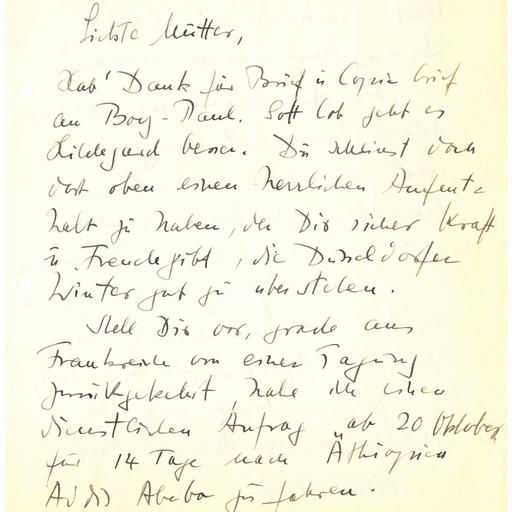 Liebste Mutter,
Hab' Dank für Brief u Copie brief
an Boy-Paul. Gott lob geht es
Hildegard besser. Du scheinst doch
dort oben einen herrlichen Aufent-
halt zu haben, der Dir sicher Kraft
u. Freude gibt, die Düsseldorfer
Winter gut zu überstehen.
Stell Dir vor, grade aus
Frankreich von einer Tagung
zurückgekehrt, habe ich einen
dienstlichen Auftrag ab 20 Oktober
für 14 Tage nach Äthiopien
Addis Abeba zu fahren.